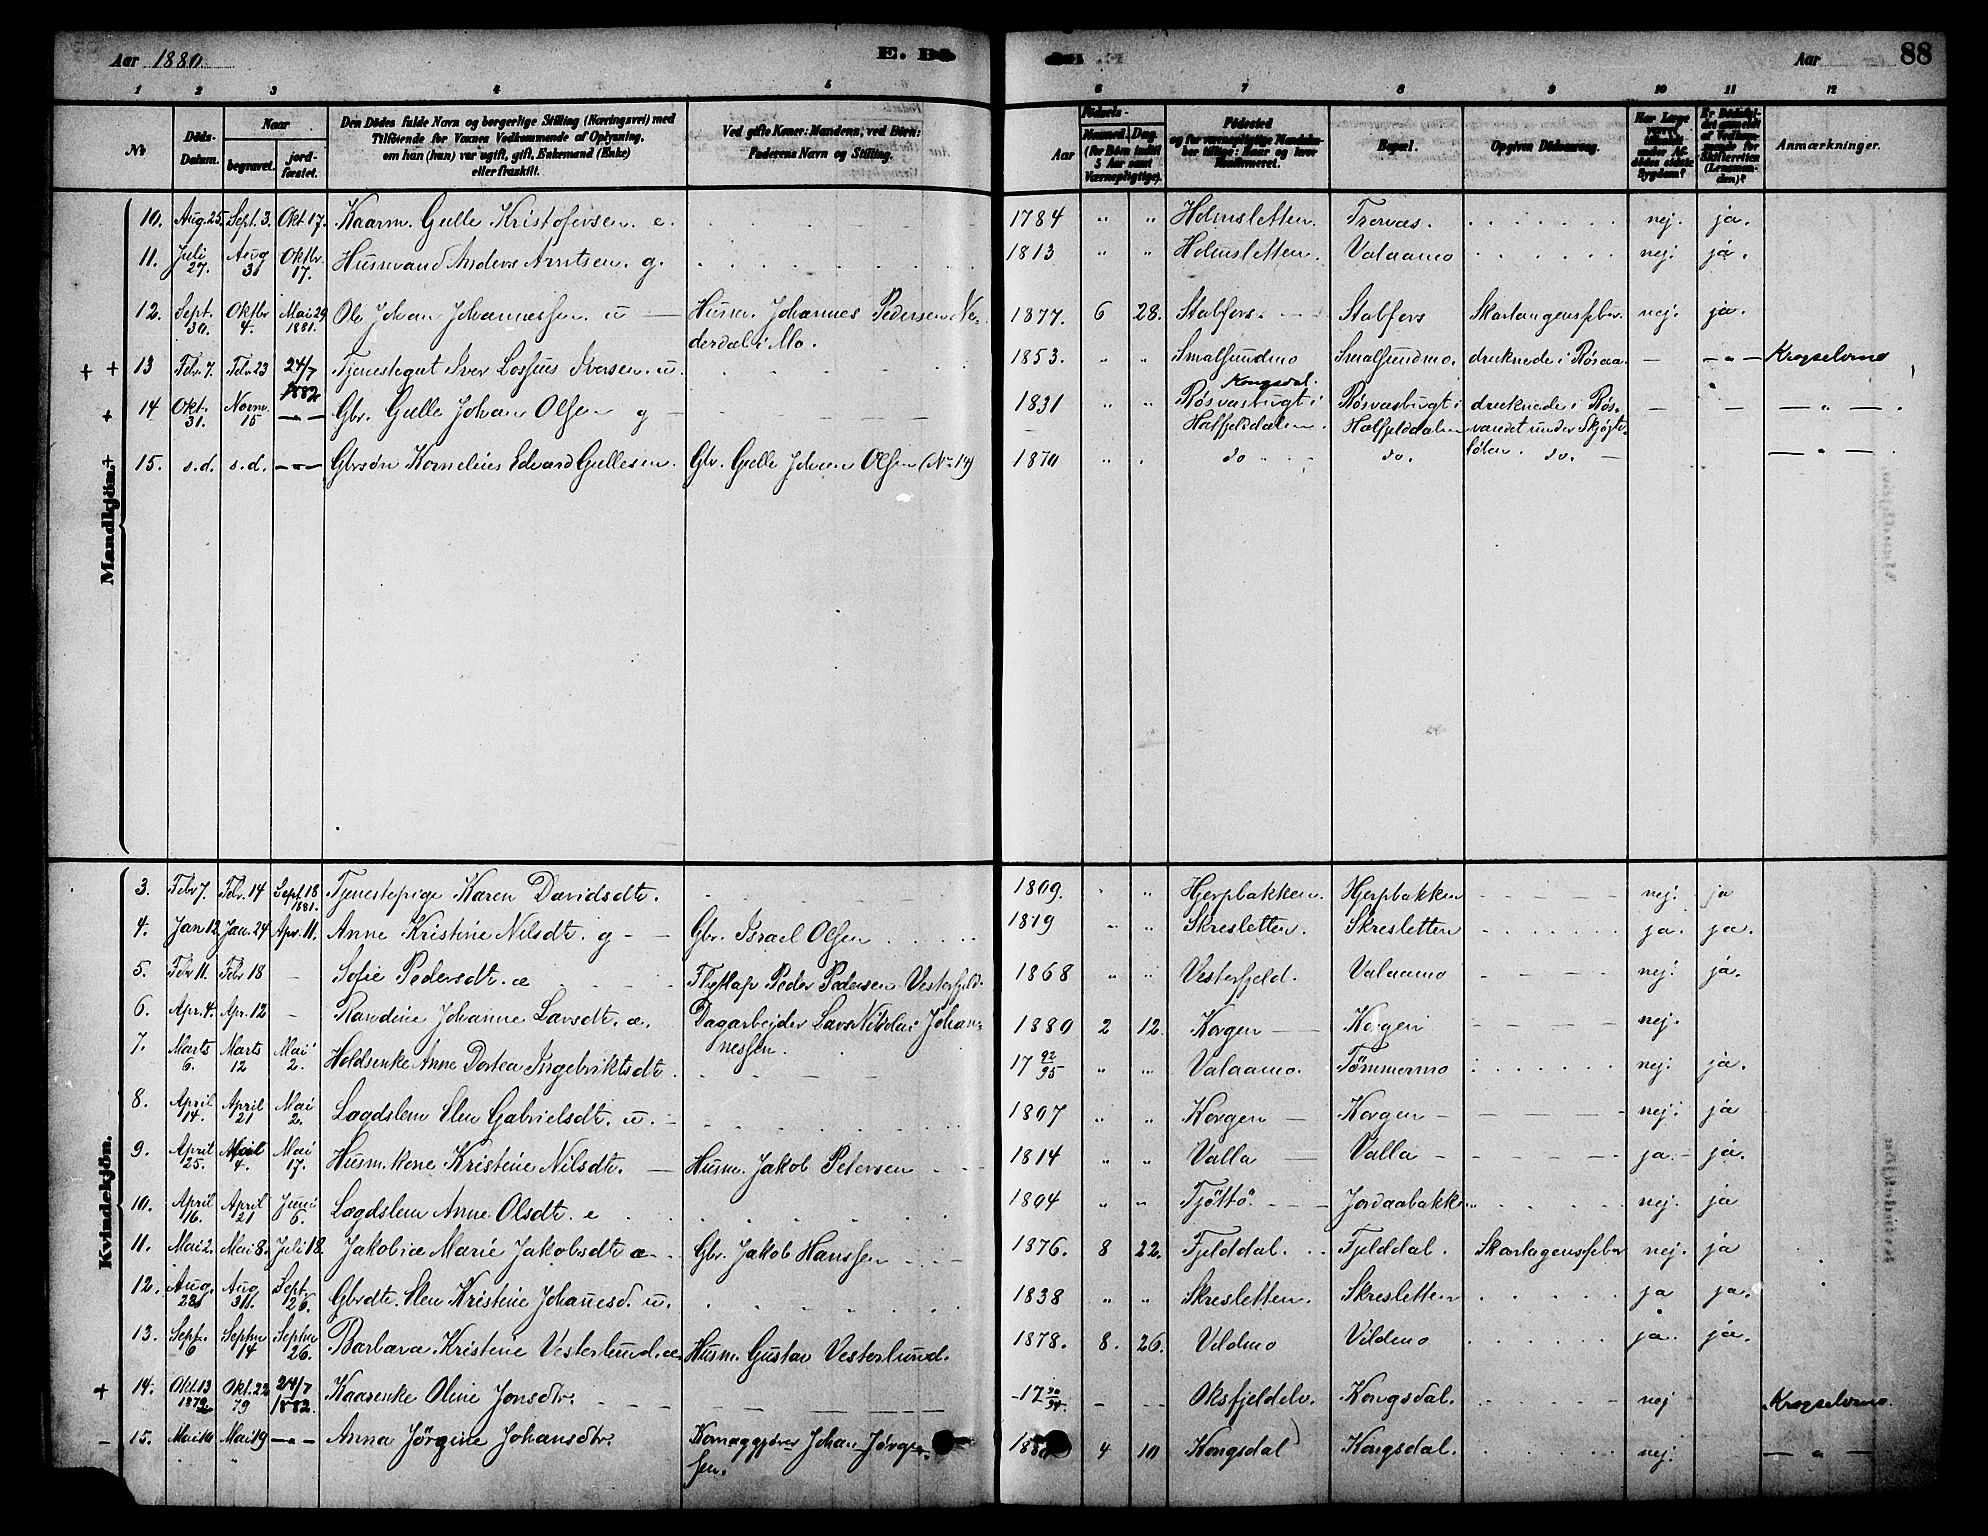 Aar 1880. E. Dø
Aar 88
1 2 3 4 5 6 7 8 9 10 11 12
№
Döds-Datum.
Naar
begravet.
jordfæstet.
Den Dødes fulde Navn og borgerlige Stilling (Næringsvei) med
Tilföiende for Voxnes Vedkommende af Oplysning,
om han (hun) var ugift, gift, Enkemand (Enke)
eller fraskilt.
Ved gifte Koner: Mandens, ved Börn:
Faderens Navn og Stilling.
Födsels-
Aar
Maaned. Dag.
(for Børn indtil
5 Aar samt
Værnepligtige).
Födested
og for værnepligtige Mandskaber tillige: Naar og hvor
Konfirmeret.
Bopæl.
Opgiven Dödsaarsag.
Har Læge
været
tilkaldt
under Afdödes sidste
Sygdom?
Er Dødsfaldet anmeldt
af Vedkommende for
Skifteretten
(Lensmanden)?
Anmærkninger.
Mandkjön.
10. Aug. 25. Sept. 3. Okt 17. Kaarm. Gulle Kristofersen. e. 1784 " " Holmsletten. nej. ja.
11. Juli 27. Aug 31 Oktbr. 17. Husmand Anders Arntsen. g. 1813 " " Holmsletten. Valaamo nej. ja.
12. Sept. 30. Oktbr 4. Mai 29 1881. Ole Johan Johannessen. u — Husm. Johannes Pedersen Nederdal i Mo. 1877. 6 28. Stabfors. Stabfors Skarlagensfeber nej. ja.
+ + 13 Febr. 7. Febr. 23 24/7 1882 Tjenestegut Iver Iversen. u. 1853. " " Smalsundmo Smalsundmo. druknede i Røsaa — — " — Krogselvmo
+ 14 Okt. 31. Novm. 15 — " — Gbr. Gulle Johan Olsen g — 1831 " " Kongsdal. Røsvasbugt i Hatfjelddalen. Røsvasbugt i Hatfjelddalen druknede i Røsvandet under — — — " —
+ 15. s.d. s.d. — " — Gbrsøn Kornelius Edvard Gullesen. Gbr. Gulle Johan Olsen (No 14) 1870 " " do do. do. — — " —
Kvindekjön.
3. Febr 7. Febr. 14 Sept. 18 1881. Tjenestepige Karen Davidsdt. 1809. " " Hjerpbakken. Hjerpbakken nej. ja
4. Jan 12 Jan. 24 Apr. 11. Anne Kristine Nilsdt. g — Gbr. Israel Olsen 1819 " " Skresletten. Skresletten ja. ja.
5. Febr 11. Febr 18 — Sofie Pedersdt. æ Flytlap Peder Pedersen Vesterfjeld. 1868 " " Vesterfjeld. Valaamo nej. ja.
6. Apr. 4. Apr. 12 — Randine Johanne Larsdt. æ. Dagarbejder Lars Nikolai Johannessen. 1880 2 12. Korgen — Korgen nej.
7. Marts 6. Marts 12 Mai 2. Holdsenke Anne Dortea Ingebriktsdt. 17 92/95 " " Valaamo. Tømmermo nej. ja.
8. April 14. April 21 Mai 2. Lægdslem Elen Gabrielsdt. u. 1807 " " Korgen — Korgen — nej. ja
9. April 25. 4. Mai 17. Husm.kone Kristine Nilsdt. — Husm. Jakob Petersen 1814 " " Valla — Valla — ja — ja.
10. April 16. April 21 Juni 6. Lægdslem Anne Olsdt. e 1804 " " Tjöttö. Jordaabakken nej. ja
11. Mai 2. Mai 8. Juli 18. Jakobia Marie Jakobsdt. æ — Gbr. Jakob Hanssen 1876. 8 22. Fjelddal. Fjelddal. Skarlagensfeber nej. ja
12. Aug. 28. Aug 31. Sept. 26. Gbrdt. Elen Kristine Johanesd. u. 1838 " " Skresletten. Skresletten ja ja.
13. Sept. 6 Septbr 14 Septbr 26. Barbara Kristine Vesterlund. æ. Husm. Gustav Vesterlund. 1878. 8. 26. Vildmo Vildmo ja. ja.
+ 14. Okt. 13 1879 Okt. 22 79 24/7 1882. Kaarenke Oline Jonsdtr. Oksfjeldelv. Kongsdal. nej Krogselvmo.
15. Mai 10 Mai 19 — " — Anna Jörgine Johansdtr. Johan Jörgensen. 4 10 Kongsdal Kongsdal. nej. — " —